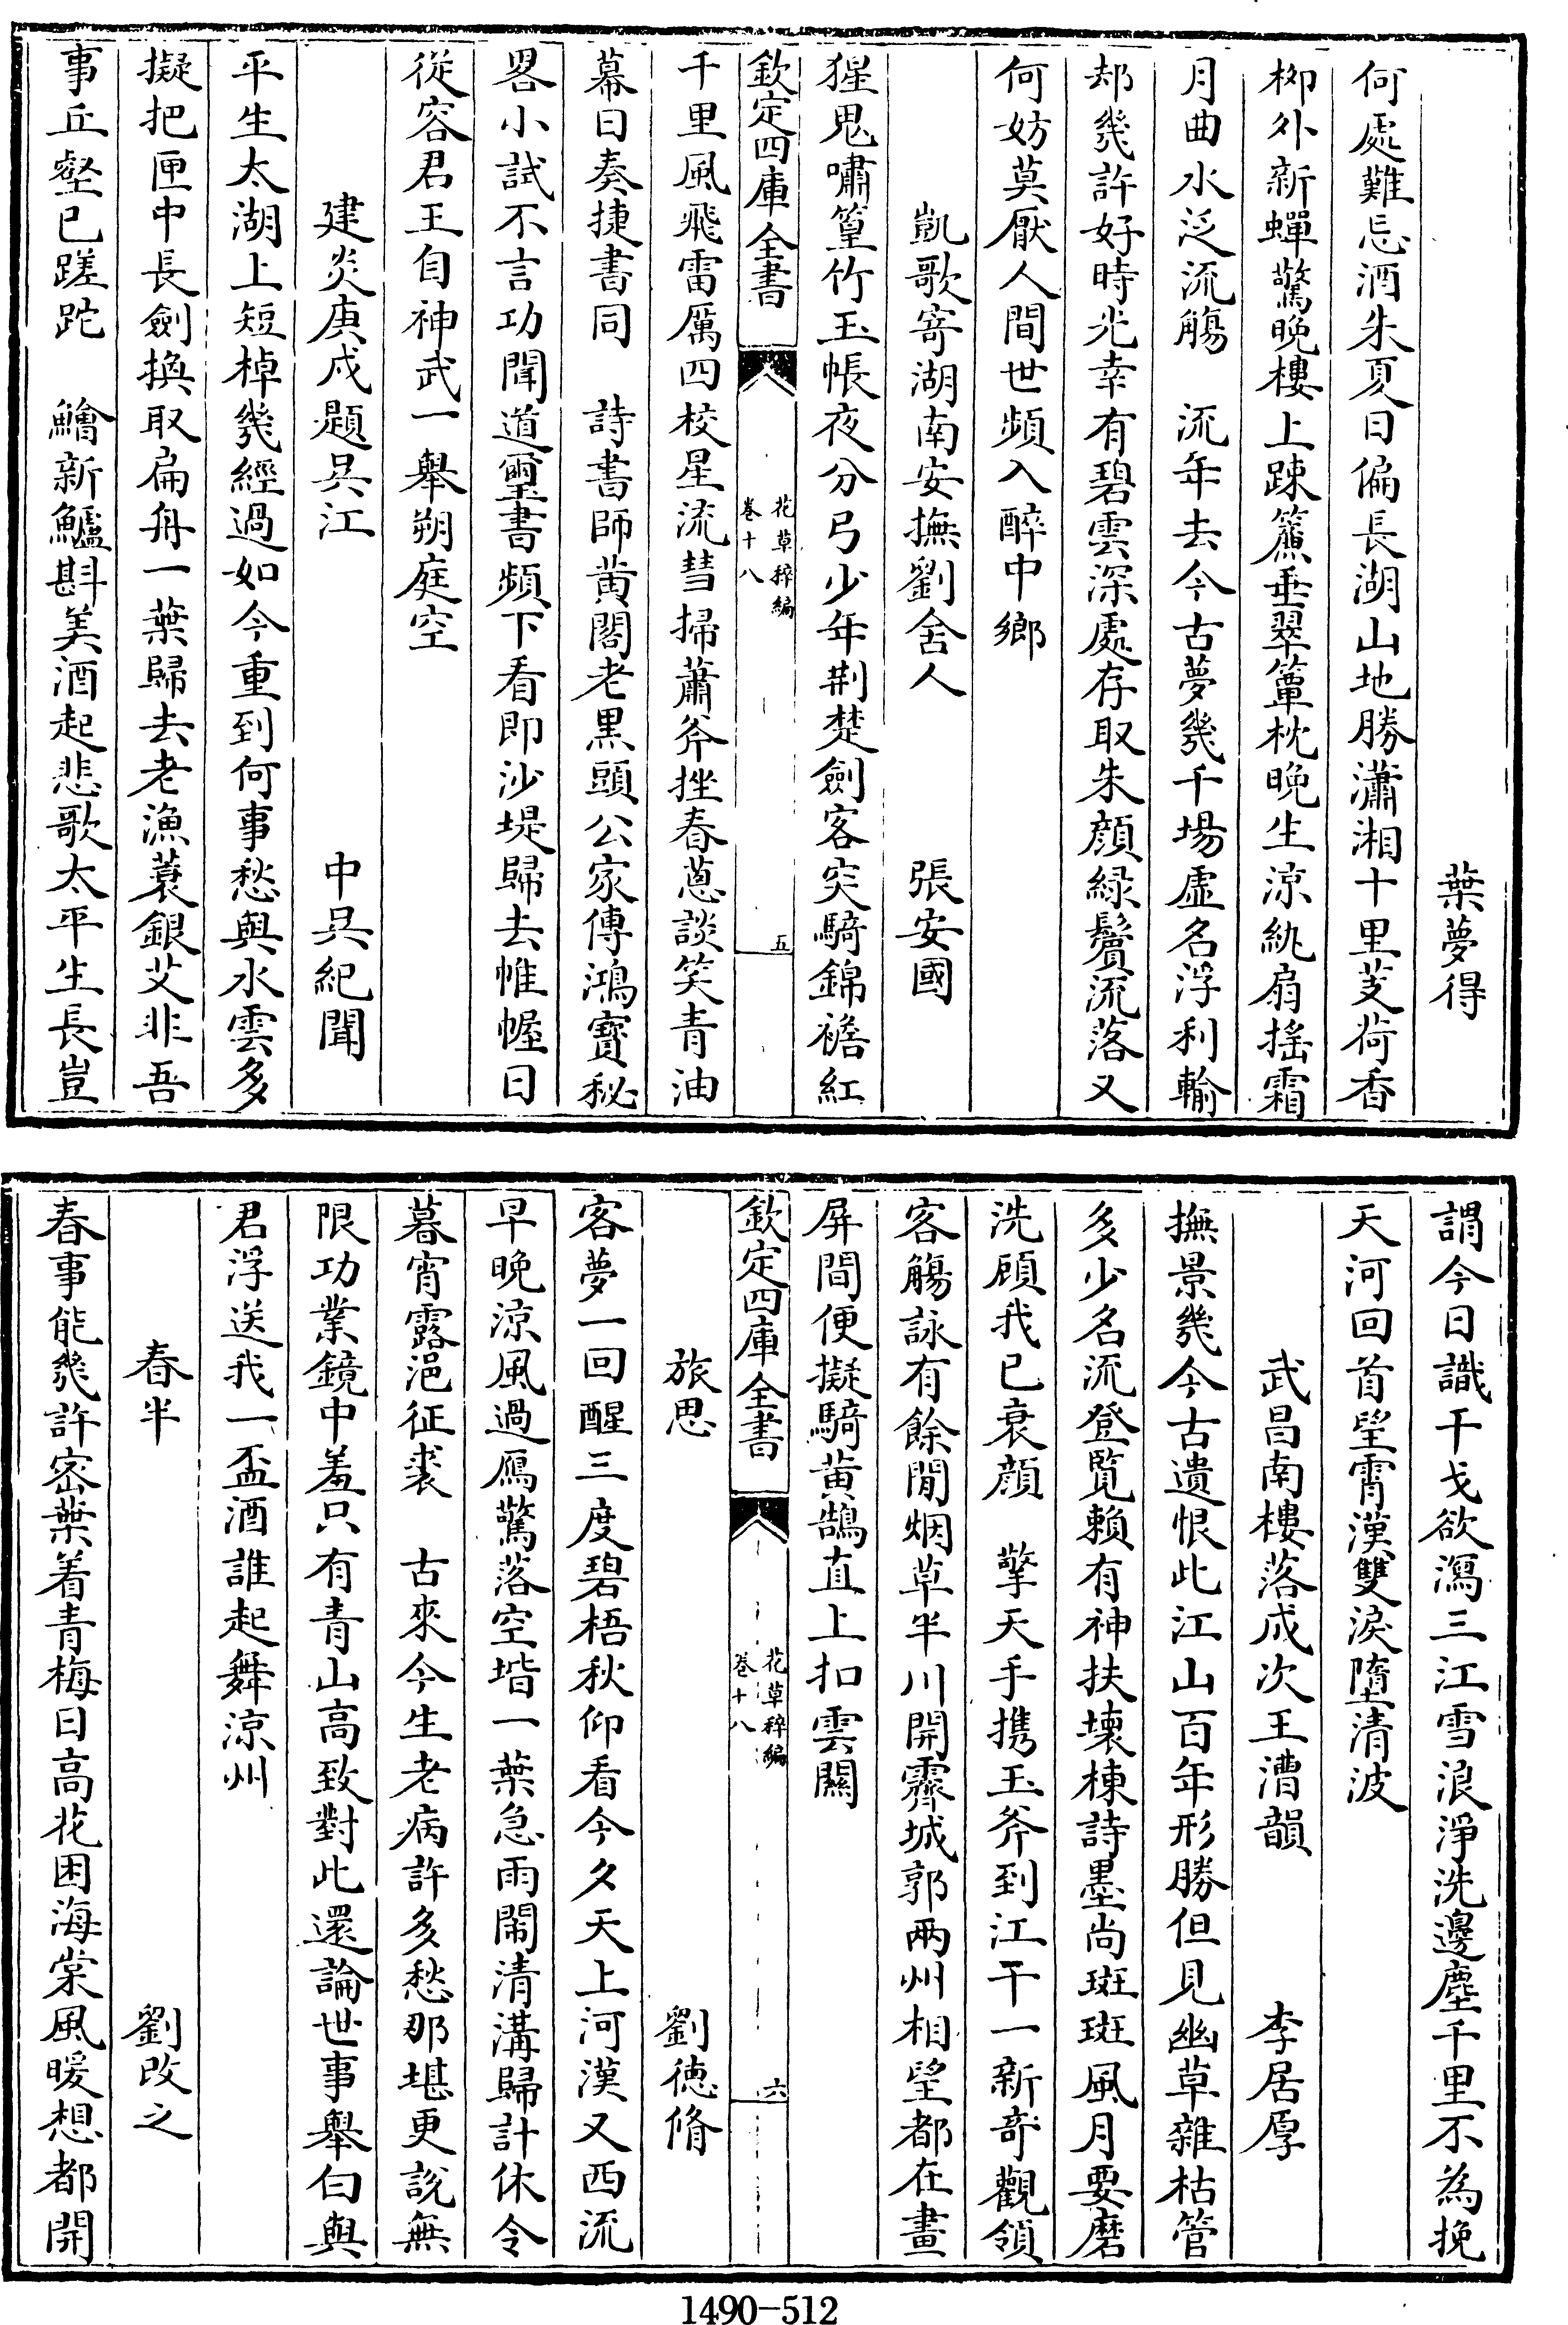 葉夢得
何處難忘酒朱夏日偏長湖山地勝瀟湘十里芰荷香
栁外新蟬驚晚樓上踈簾垂翠簟枕晚生涼紈扇揺霜
月曲水泛流觴　流年去今古夢幾千場虚名浮利輸
却幾許好時光幸有碧雲深處存取朱顔緑鬢流落又
何妨莫厭人間世頻入醉中鄉
凱歌寄湖南安撫劉舍人　張安國
猩鬼嘯篁竹玉帳夜分弓少年荆楚劍客突騎錦襜紅
欽定四庫全書　花草稡編 卷十八　五
千里風飛雷厲四校星流彗掃蕭斧挫春蔥談笑青油
幕日奏捷書同　詩書帥黄閣老黒頭公家傳鴻寳秘
畧小試不言功聞道璽書頻下看即沙堤歸去帷幄日
從容君王自神武一舉朔庭空
建炎庚戍題吳江　中吳紀聞
平生太湖上短棹幾經過如今重到何事愁與水雲多
擬把匣中長劍換取扁舟一葉歸去老漁蓑銀艾非吾
事丘壑已蹉跎　鱠新鱸斟美酒起悲歌太平生長豈
謂今日識干戈欲瀉三江雪浪淨洗邊塵千里不為挽
天河回首望霄漢雙淚墮清波
武昌南樓落成次王漕韻　李居厚
撫景幾今古遺恨此江山百年形勝但見幽草雜枯管
多少名流登覧賴有神扶壊棟詩墨尚斑斑風月要磨
洗顧我已衰顔　擎天手携玉斧到江干一新竒觀領
客觴詠有餘閒烟草半川開霽城郭兩州相望都在畫
屏間便擬騎黄鵠直上扣雲闗
欽定四庫全書　花草稡編 卷十八　六
旅思　劉徳脩
客夢一回醒三度碧梧秋仰看今夕天上河漢又西流
早晚涼風過鴈驚落空堦一葉急雨閙清溝歸計休令
暮宵露浥征裘　古來今生老病許多愁那堪更説無
限功業鏡中羞只有青山高致對此還論世事舉白與
君浮送我一盃酒誰起舞涼州
春半　劉改之
春事能幾許密葉着青梅日高花困海棠風暖想都開
1490-512